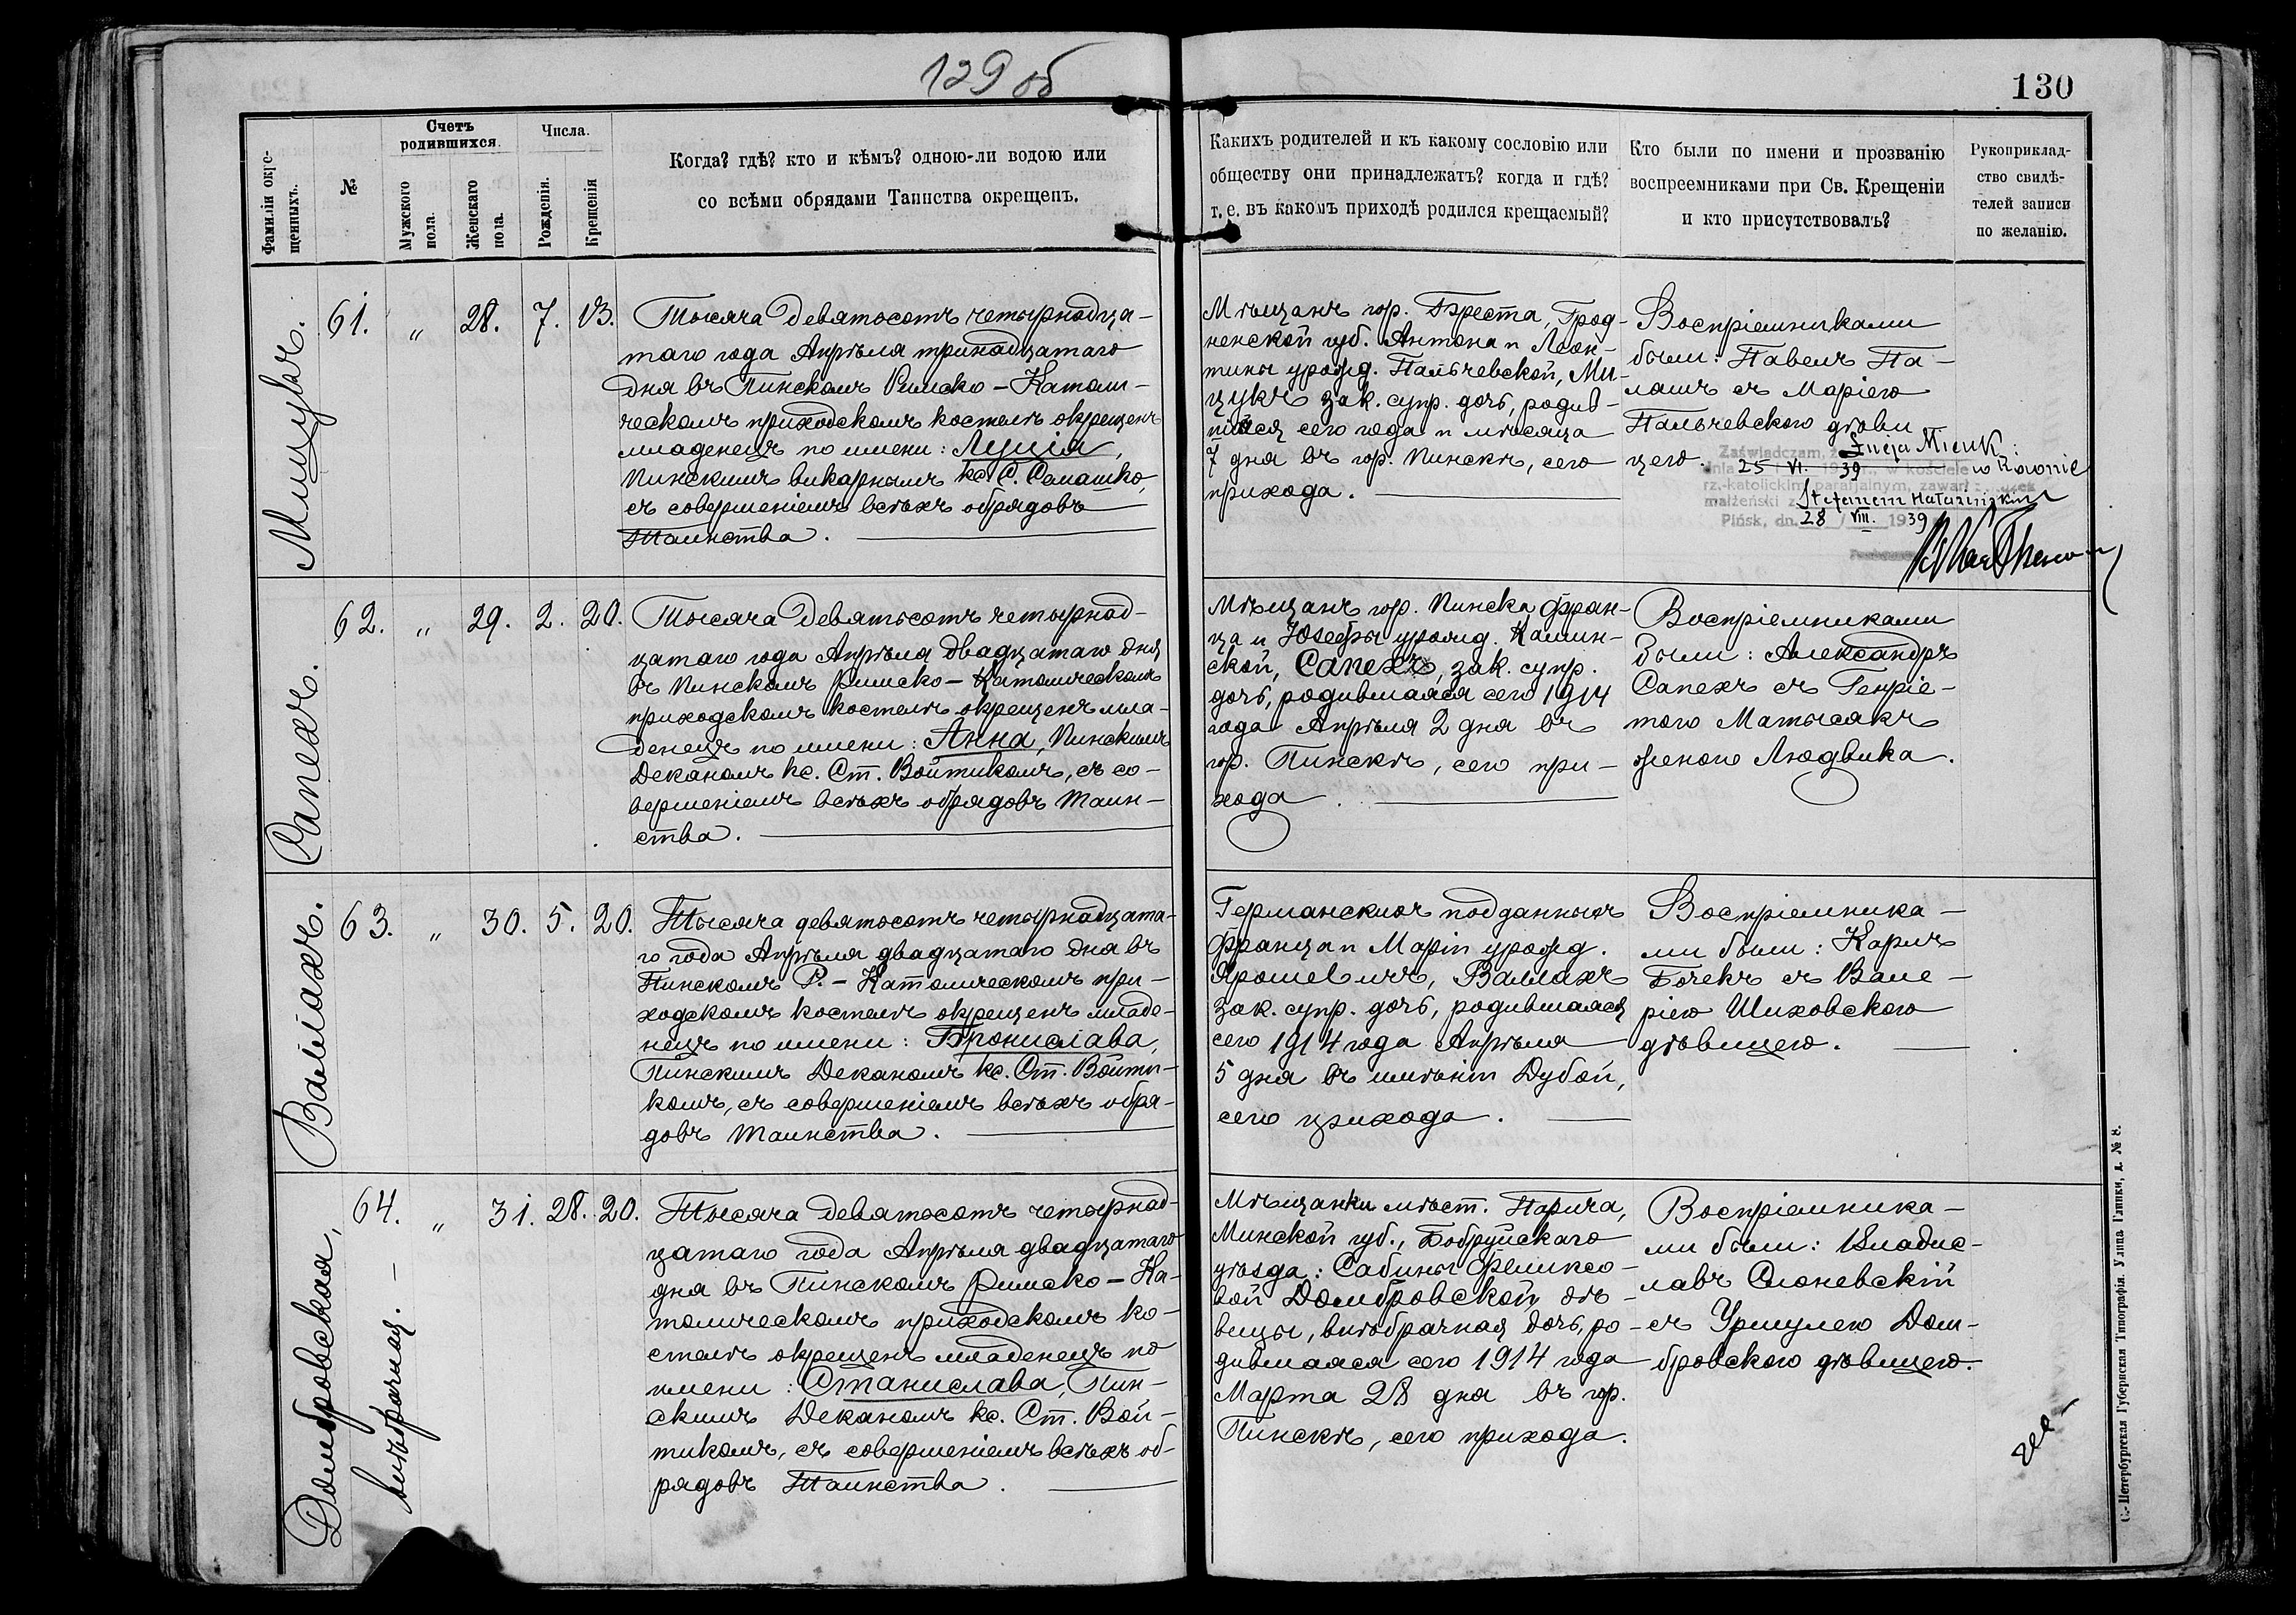 129 об
130
Фамиліи окре-
щенныхъ.
№
Счетъ
родившихся.
Мужского
пола.
Женскаго
пола.
Числа.
Рожденія.
Крещенія
Когда? гдѣ? кто и кѣмъ? одною-ли водою или
со всѣми обрядами Таинства окрещенъ.
Каких​ъ родителей и къ какому сословію или
обществу они принадлежатъ? когда и гдѣ?
т. е. въ какомъ приходѣ родился крещаемый?
Кто были по имени и прозванію
воспреемниками при Св. Крещеніи
и кто присутствовалъ?
Рукоприклад-
ство свидѣ-
телей записи
по желанію.
Мицукъ.
61. " 28. 7. 13.
Тысяча девятьсотъ четырнадца-
таго года Апрѣля тринадцатаго
дня въ Пинскомъ Римско-Католи-
ческомъ приходскомъ костелѣ окрещенъ
младенецъ по имени: Луція,
Пинскимъ викарнымъ кс. С. Семашко,
съ совершеніемъ всѣхъ обрядовъ
Таинства.
Мѣщанъ гор. Бреста, Грод-
ненской губ. Антона и Леон-
тины урожд. Пальчевской, Ми-
цукъ зак. супр. дочь, родив-
шаяся сего года и мѣсяца
7 дня въ гор. Пинскѣ, сего
прихода.
Воспріемниками
были: Павелъ Па-
лашъ съ Маріею
Пальчевскою дѣви
цею.
Zaświadczam, ż
dnia 25 VI. 39 r., w kościele w Równie
rz.-katolickim parafjalnym, zawarł
małżeński z Stefanem
Pińsk, dn. 28 / VIII. 1939
Сапехъ.
62. " 29. 2. 20.
Тысяча девятьсотъ четырнад-
цатаго года Апрѣля двадцатаго дня
въ Пинскомъ Римско-Католическомъ
приходскомъ костелѣ окрещенъ мла-
денецъ по имени: Анна, Пинскимъ
Деканомъ кс. Ст. Войтикомъ, съ со-
вершеніемъ всѣхъ обрядовъ Таин-
ства.
Мѣщанъ гор. Пинска Фран-
ца и Юзефы урожд. Камин-
ской, Сапехъ, зак. супр.
дочь, родившаяся сего 1914
года Апрѣля 2 дня въ
гор. Пинскѣ, сего при-
хода
Воспріемниками
были: Александръ
Сапехъ съ Генріе-
тою Матысякъ
женою Людвика.
Валлахъ.
63. " 30. 5. 20.
Тысяча девятьсотъ четырнадцата-
го года Апрѣля двадцатаго дня въ
Пинскомъ Р.-Католическомъ при-
ходскомъ костелѣ окрещенъ младе-
нецъ по имени: Бронислава,
Пинскимъ Деканомъ кс. Ст. Войти-
комъ, съ совершеніемъ всѣхъ обря-
довъ Таинства.
Германскихъ подданныхъ
Франца и Маріи урожд.
Ярошевичъ, Валлахъ
зак. супр. дочь, родившаяся
сего 1914 года Апрѣля
5 дня въ имѣніи Дубой,
сего прихода.
Воспріемника-
ми были: Карлъ
Бочекъ съ Вале-
ріею Шиховскою
дѣвицею.
Домбровская,
внѣбрачная.
64. " 31. 28. 20.
Тысяча девятьсотъ четырнад-
цатаго года Апрѣля двадцатаго
дня въ Пинскомъ Римско-Ка-
толическомъ приходскомъ ко-
стелѣ окрещенъ младенецъ по
имени: Станислава, Пин-
скимъ Деканомъ кс. Ст. Вой-
тикомъ, съ совершеніемъ всѣхъ об-
рядовъ Таинства.
Мѣщанки мѣст. Парича,
Минской губ., Бобруйскаго
уѣзда: Сабины Феликсо-
вой Домбровской дѣ-
вицы, внѣбрачная дочь, ро-
дившаяся сего 1914 года
Марта 28 дня въ гор.
Пинскѣ, сего прихода.
Воспріемника-
ми были: Владис-
лавъ Слоневскій
съ Уршулею Дом-
бровскою дѣвицею.
С.-Петербургская Губернская Типографія. Улица Глинки, д. № 8.